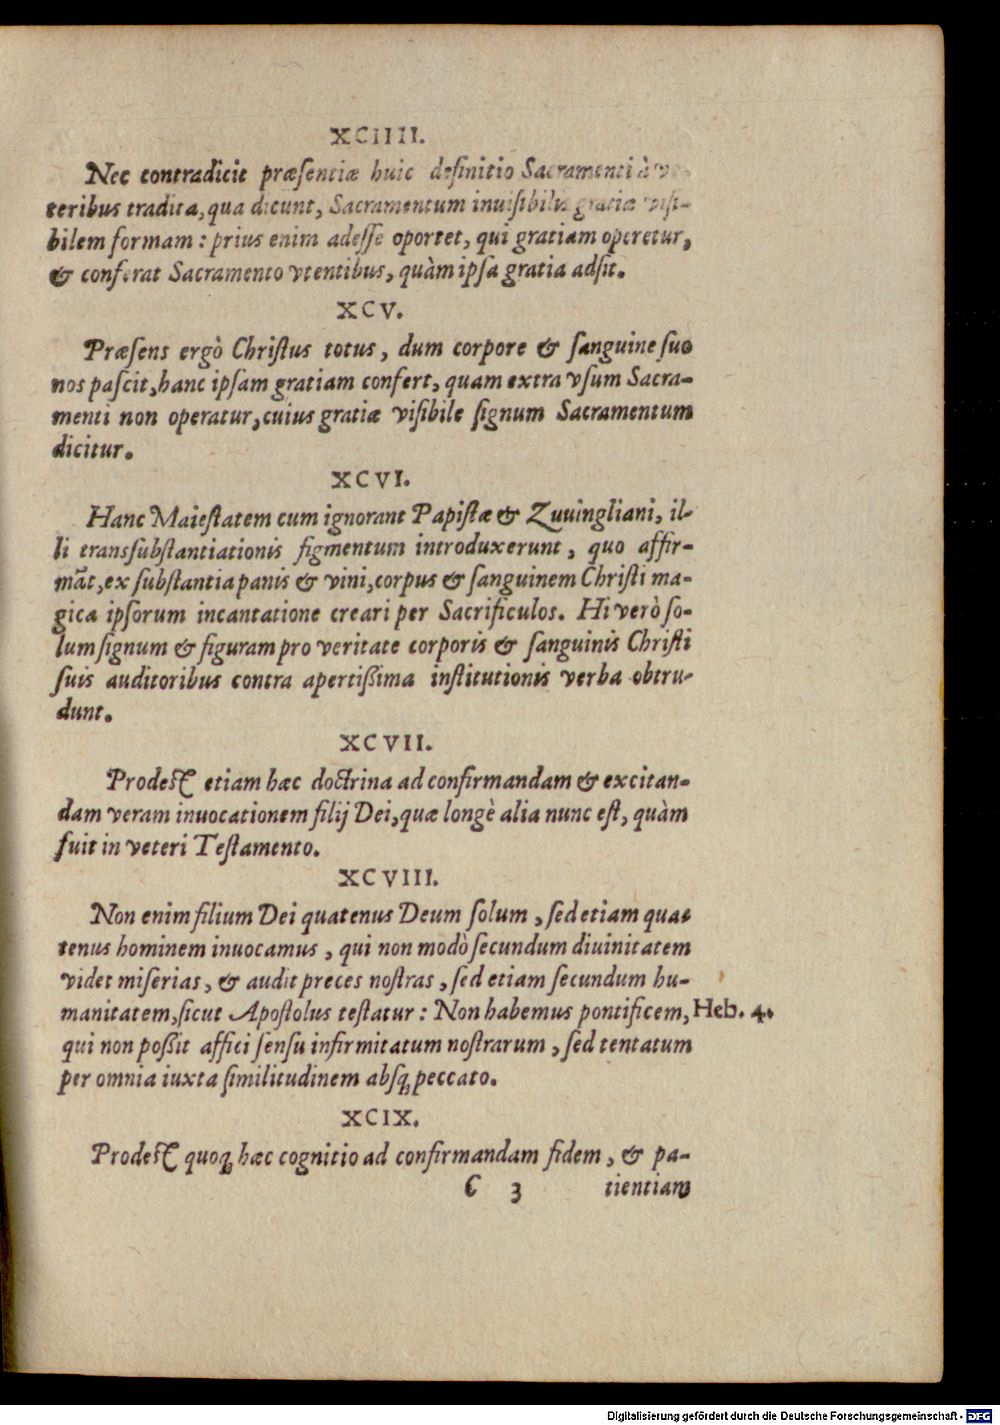 XCIIII.
Nec contradicit præſentiæ huic definitio Sacramenti à ve-
teribus tradita, qua dicunt, Sacramentum inuiſibilis gratiæ viſi-
bilem formam: prius enim adeſſe oportet, qui gratiam operetur,
& conferat Sacramento vtentibus, quàm ipſa gratia adſit.
XCV.
Præſens ergò Chriſtus totus, dum corpore & ſanguine ſuo
nos paſcit, hanc ipſam gratiam confert, quam extra vſum Sacra-
menti non operatur, cuius gratiæ viſibile ſignum Sacramentum
dicitur.
XCVI.
Hanc Maieſtatem cum ignorant Papiſtæ & Zuuingliani, il-
li transſubſtantiationis figmentum introduxerunt, quo affir-
mãt, ex ſubſtantia panis & vini, corpus & ſanguinem Chriſti ma-
gica ipſorum incantatione creari per Sacrificulos. Hi verò ſo-
lum ſignum & figuram pro veritate corporis & ſanguinis Chriſti
ſuis auditoribus contra apertißima inſtitutionis verba obtru-
dunt.
XCVII.
Prodeſt etiam hæc doctrina ad confirmandam & excitan-
dam veram inuocationem filij Dei, quæ longè alia nunc eſt, quàm
fuit in veteri Teſtamento.
XCVIII.
Non enim filium Dei quatenus Deum ſolum, ſed etiam qua-
tenus hominem inuocamus, qui non modò ſecundum diuinitatem
videt miſerias, & audit preces noſtras, ſed etiam ſecundum hu-
manitatem, ſicut Apoſtolus teſtatur: Non habemus pontificem, Heb. 4.
qui non poßit affici ſenſu infirmitatum noſtrarum, ſed tentatum
per omnia iuxta ſimilitudinem abſq́ peccato.
XCIX.
Prodeſt quoq́ hæc cognitio ad confirmandam fidem, & pa-
C 3 tientiam
Digitalisierung gefördert durch die Deutsche Forschungsgemeinschaft - DFG